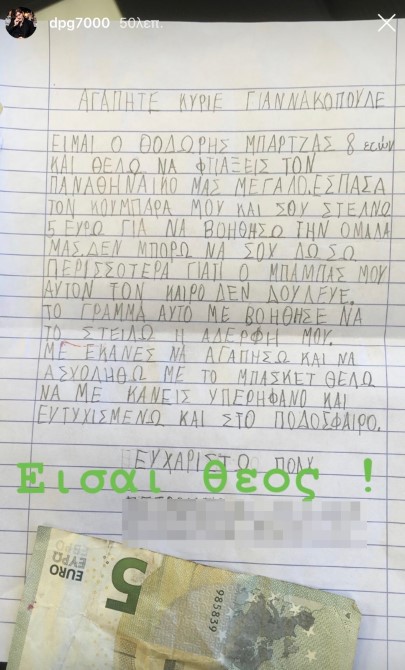 dpg7000 50λεπ.
ΑΓΑΠΗΤΕ ΚΥΡΙΕ ΓΙΑΝΝΑΚΟΠΟΥΛΕ
ΕΙΜΑΙ Ο ΘΟΔΩΡΗΣ ΜΠΑΡΤΖΑΣ 8 ετών
ΚΑΙ ΘΕΛΩ ΝΑ ΦΤΙΑΞΕΙΣ ΤΟΝ
ΠΑΝΑΘΗΝΑΙΚΟ ΜΑΣ ΜΕΓΑΛΟ.ΕΣΠΑΣΑ
ΤΟΝ ΚΟΥΜΠΑΡΑ ΜΟΥ ΚΑΙ ΣΟΥ ΣΤΕΛΝΩ
5 ΕΥΡΩ ΓΙΑ ΝΑ ΒΟΗΘΗΣΩ ΤΗΝ ΟΜΑΔΑ
ΜΑΣ.ΔΕΝ ΜΠΟΡΩ ΝΑ ΣΟΥ ΔΩΣΩ
ΠΕΡΙΣΣΟΤΕΡΑ ΓΙΑΤΙ Ο ΜΠΑΜΠΑΣ ΜΟΥ
ΑΥΤΟΝ ΤΟΝ ΚΑΙΡΟ ΔΕΝ ΔΟΥΛΕΥΕ.
ΤΟ ΓΡΑΜΜΑ ΑΥΤΟ ΜΕ ΒΟΗΘΗΣΕ ΝΑ
ΤΟ ΣΤΕΙΛΩ Η ΑΔΕΡΦΗ ΜΟΥ.
ΜΕ ΕΚΑΝΕΣ ΝΑ ΑΓΑΠΗΣΩ ΚΑΙ ΝΑ
ΑΣΧΟΛΗΘΩ ΜΕ ΤΟ ΜΠΑΣΚΕΤ ΘΕΛΩ
ΝΑ ΜΕ ΚΑΝΕΙΣ ΥΠΕΡΗΦΑΝΟ ΚΑΙ
ΕΥΤΥΧΙΣΜΕΝΩ ΚΑΙ ΣΤΟ ΠΟΔΟΣΦΑΙΡΟ.
ΕΥΧΑΡΙΣΤΩ ΠΟΛΥ
Εισαι θεος !
5
EURO
ΕΥΡΩ
ЕВРО
985839